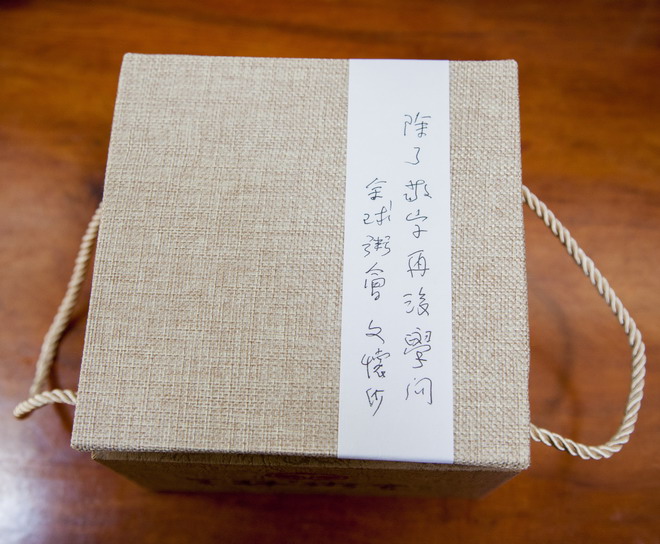 除了敬字再没學问
全球粥會 文懷沙